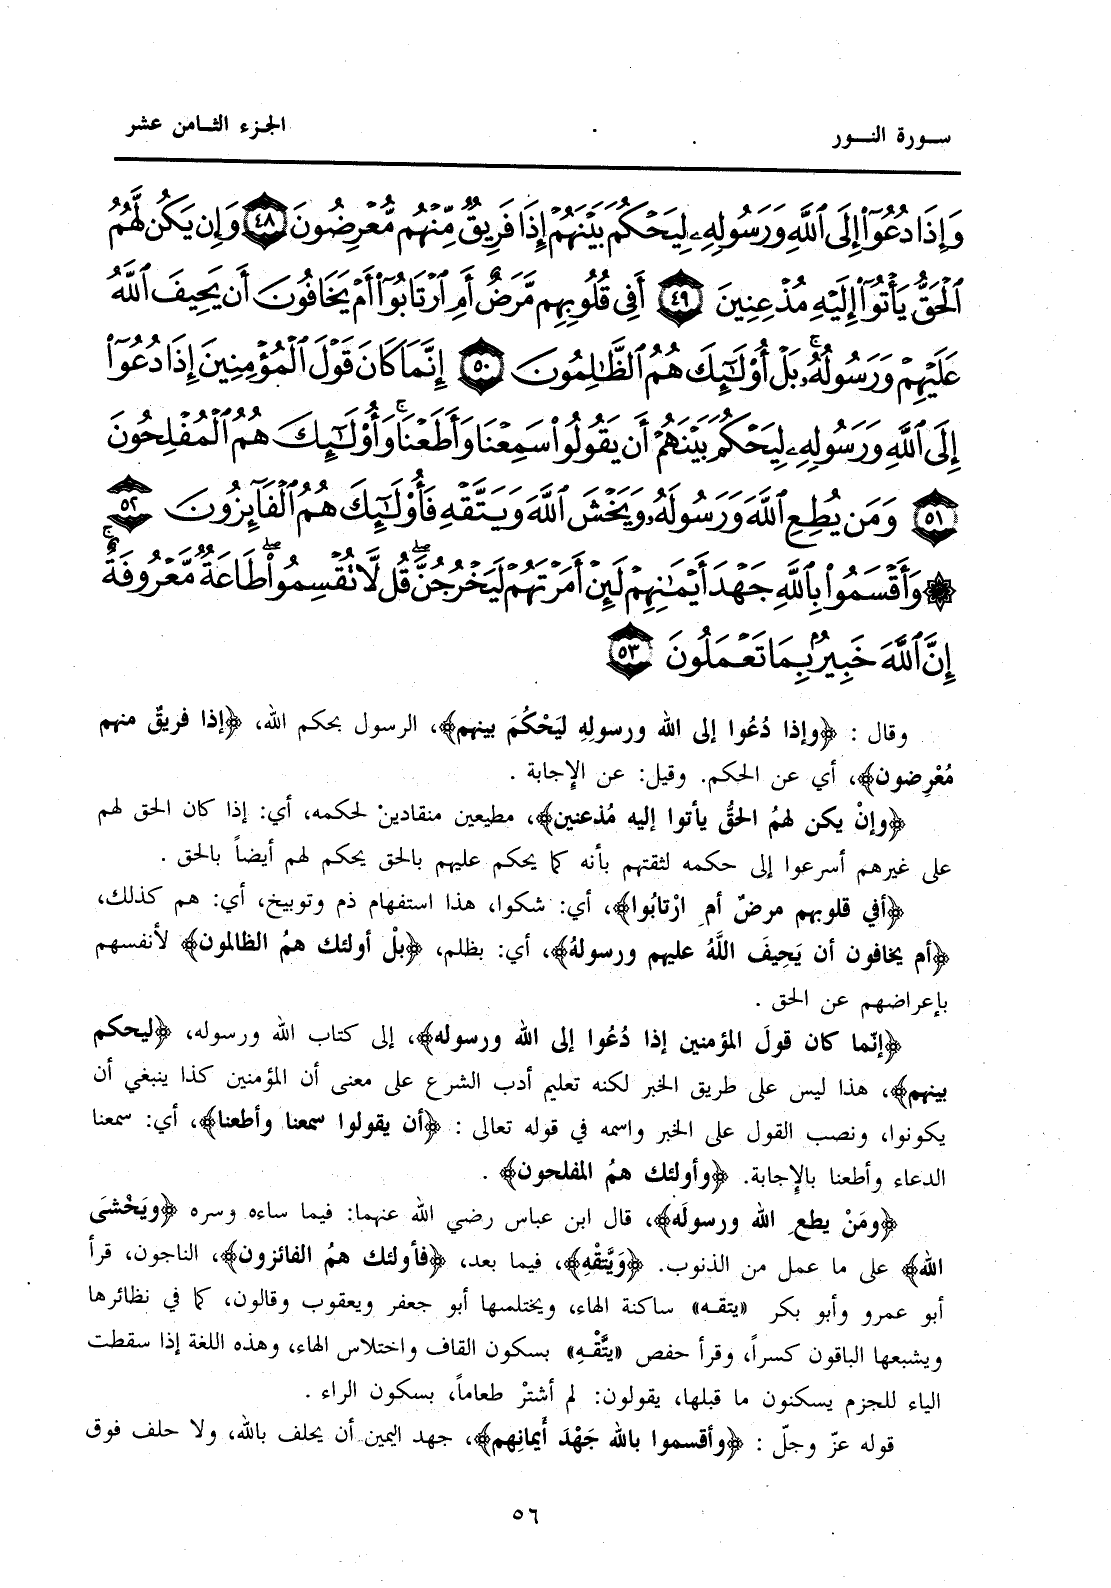 سورة النور
الجزء الثامن عشر
وَإِذَا دُعُوٓا۟ إِلَى ٱللَّهِ وَرَسُولِهِۦ لِيَحْكُمَ بَيْنَهُمْ إِذَا فَرِيقٌ مِّنْهُم مُّعْرِضُونَ ٤٨ وَإِن يَكُن لَّهُمُ
ٱلْحَقُّ يَأْتُوٓا۟ إِلَيْهِ مُذْعِنِينَ ٤٩ أَفِى قُلُوبِهِم مَّرَضٌ أَمِ ٱرْتَابُوٓا۟ أَمْ يَخَافُونَ أَن يَحِيفَ ٱللَّهُ
عَلَيْهِمْ وَرَسُولُهُۥ ۚ بَلْ أُو۟لَٰٓئِكَ هُمُ ٱلظَّٰلِمُونَ ٥٠ إِنَّمَا كَانَ قَوْلَ ٱلْمُؤْمِنِينَ إِذَا دُعُوٓا۟
إِلَى ٱللَّهِ وَرَسُولِهِۦ لِيَحْكُمَ بَيْنَهُمْ أَن يَقُولُوا۟ سَمِعْنَا وَأَطَعْنَا ۚ وَأُو۟لَٰٓئِكَ هُمُ ٱلْمُفْلِحُونَ
٥١ وَمَن يُطِعِ ٱللَّهَ وَرَسُولَهُۥ وَيَخْشَ ٱللَّهَ وَيَتَّقْهِ فَأُو۟لَٰٓئِكَ هُمُ ٱلْفَآئِزُونَ ٥٢
۞ وَأَقْسَمُوا۟ بِٱللَّهِ جَهْدَ أَيْمَٰنِهِمْ لَئِنْ أَمَرْتَهُمْ لَيَخْرُجُنَّ ۖ قُل لَّا تُقْسِمُوا۟ ۖ طَاعَةٌ مَّعْرُوفَةٌ ۚ
إِنَّ ٱللَّهَ خَبِيرٌۢ بِمَا تَعْمَلُونَ ٥٣
وقال : ﴿وإذا دُعُوا إلى الله ورسولِهِ ليَحْكُمَ بينهم﴾، الرسول بحكم الله، ﴿إذا فريقٌ منهم
مُعْرِضون﴾، أي عن الحكم. وقيل: عن الإجابة .
﴿وإنْ يكن لهمُ الحقُّ يأتوا إليه مُذعنين﴾، مطيعين منقادينْ لحكمه، أي: إذا كان الحق لهم
على غيرهم أسرعوا إلى حكمه لثقتهم بأنه كما يحكم عليهم بالحق يحكم لهم أيضاً بالحق .
﴿أفي قلوبهم مرضٌ أمِ ارْتابُوا﴾، أي: شكوا، هذا استفهام ذم وتوبيخ، أي: هم كذلك،
﴿أم يخافون أن يَحِيفَ اللَّهُ عليهم ورسولهُ﴾، أي: بظلم، ﴿بلْ أولئك همُ الظالمون﴾ لأنفسهم
بإعراضهم عن الحق .
﴿إنّما كان قولَ المؤمنين إذا دُعُوا إلى الله ورسوله﴾، إلى كتاب الله ورسوله، ﴿ليحكم
بينهم﴾، هذا ليس على طريق الخبر لكنه تعليم أدب الشرع على معنى أن المؤمنين كذا ينبغي أن
يكونوا، ونصب القول على الخبر واسمه في قوله تعالى : ﴿أن يقولوا سمعنا وأطعنا﴾، أي: سمعنا
الدعاء وأطعنا بالإجابة. ﴿وأولئك همُ المفلحون﴾ .
﴿ومَنْ يطعِ الله ورسولَه﴾، قال ابن عباس رضي الله عنهما: فيما ساءه وسره ﴿ويَخْشَى
الله﴾ على ما عمل من الذنوب. ﴿وَيَّتقْهِ﴾، فيما بعد، ﴿فأولئك همُ الفائزون﴾، الناجون، قرأ
أبو عمرو وأبو بكر «يتقـه» ساكنة الهاء، ويختلسها أبو جعفر ويعقوب وقالون، كما في نظائرها
ويشبعها الباقون كسراً، وقرأ حفص «يتَّقْـهِ» بسكون القاف واختلاس الهاء، وهذه اللغة إذا سقطت
الياء للجزم يسكنون ما قبلها، يقولون: لم أشترْ طعاماً، بسكون الراء .
قوله عزّ وجلّ : ﴿وأقسموا بالله جَهْدَ أَيمانِهم﴾، جهد اليمين أن يحلف بالله، ولا حلف فوق
٥٦